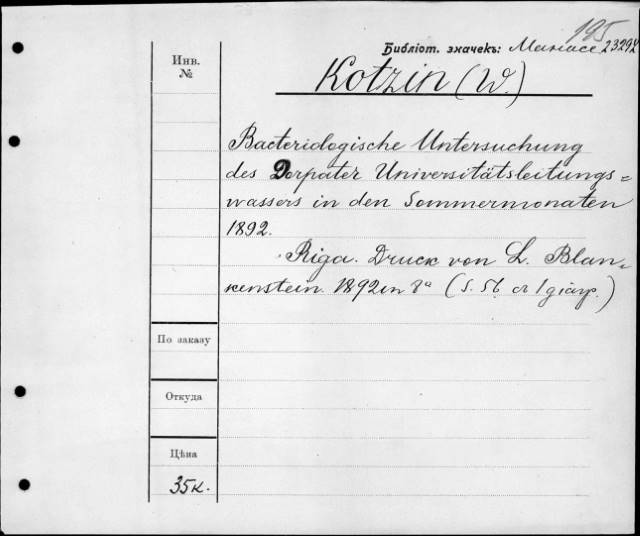 195
Библіот. значекъ: Манассе 23292
Инв.
№
Kotzin (W.)
Bacteriologische Untersuchung
des Dorpater Universitätsleitungs=
wassers in den Sommermonaten
1892.
Riga. Druck von L. Blan-
kenstein. 1892 in 8º (S. 56 съ 1 діагр.)
По заказу
Откуда
Цѣна
35к.